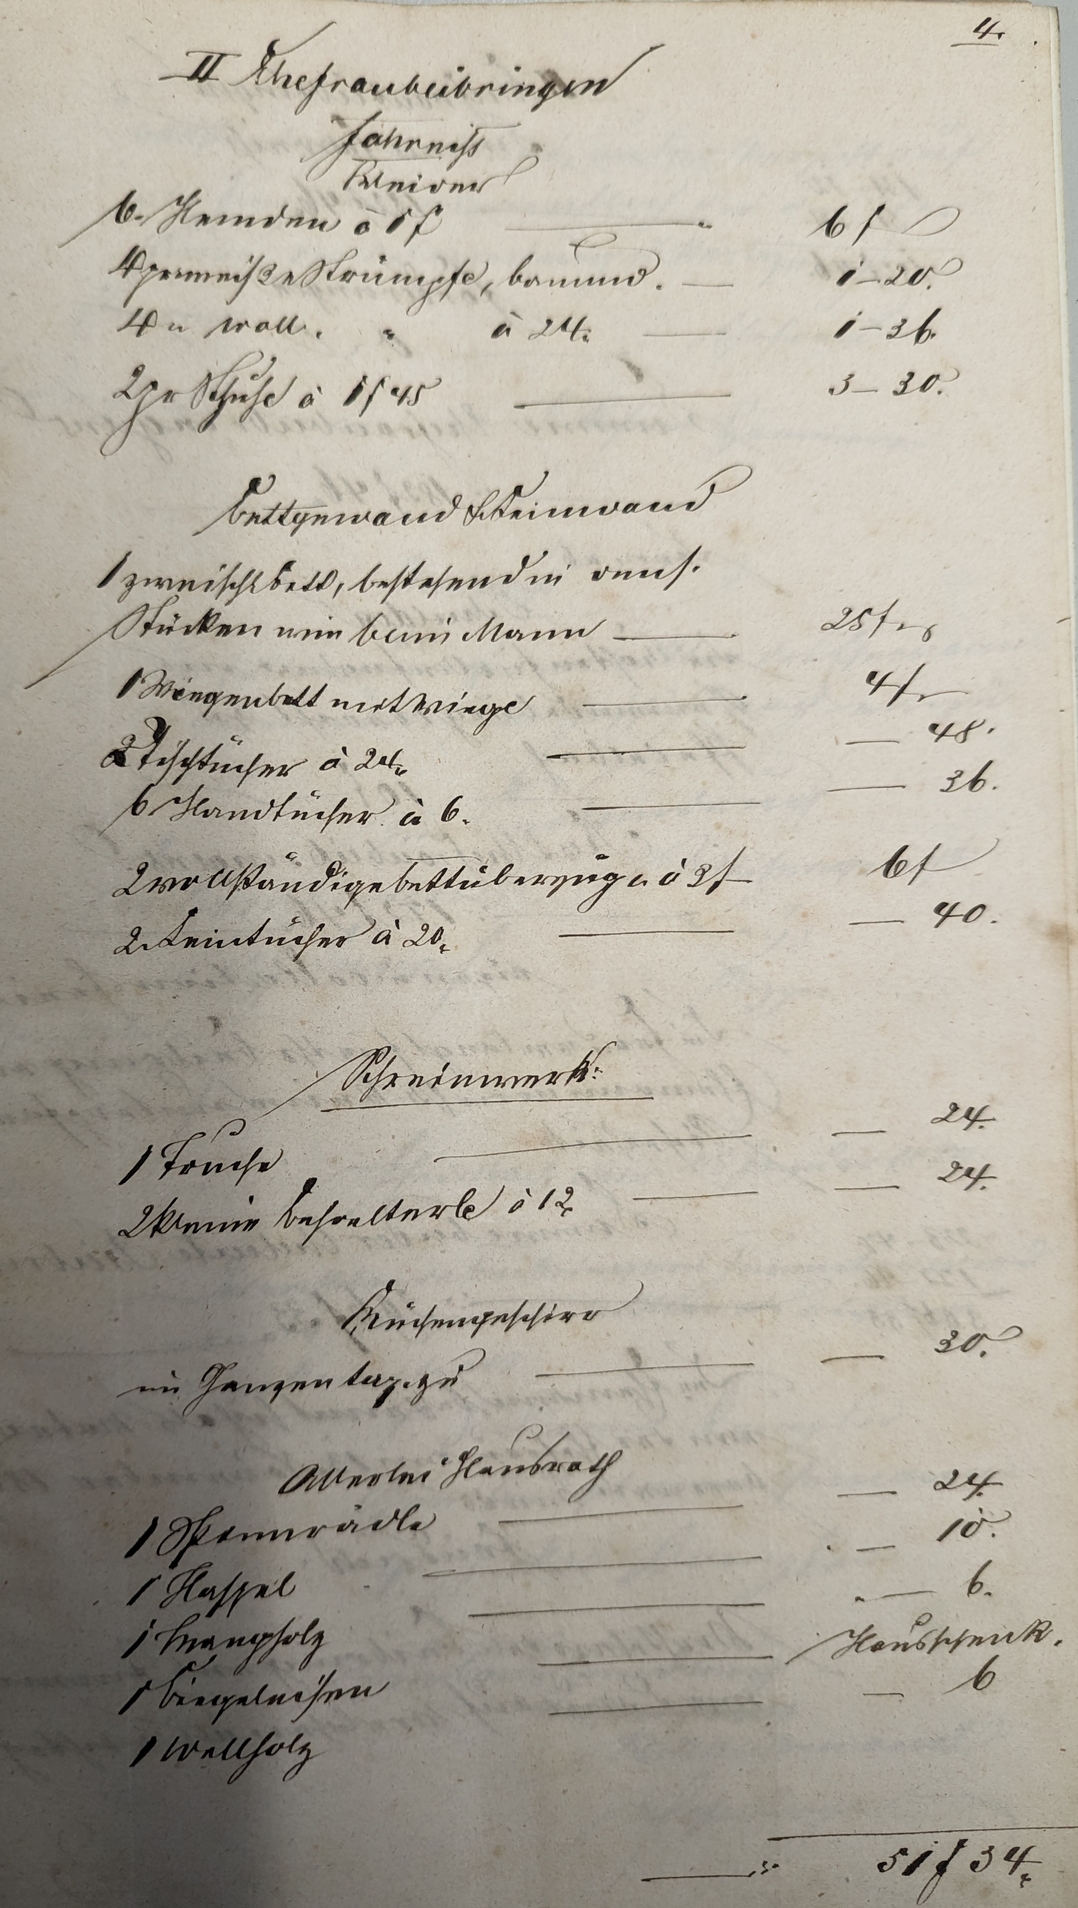 4.
II Ehefraubeibringen
Fahrniß
Kleider
6. Hemden à 1f 6f
4 pr weiße Strümpfe, baumw. 1-20.
4 " woll. " à 24. 1-36.
2 pr Schuhe à 1f 45 3-30.
Bettgewand & Leinwand
1 zweischl. Bett, bestehend in
Stücken wie beim Mann 25f
1 Wiegenbett mit Wiege 4f
2 Tischtücher à 24. - 48.
6. Handtücher à 6. - 36.
2 vollständige Bettüberzüge à 3f 6f
2. Leintücher à 20. - 40.
Schreinwerk:
1 Truche - 24.
2 kleine Behälterle à 12. - 24.
Küchengeschirr
im Ganzen tax. zu - 30.
Allerlei Hausrath
1 Spinnrädle - 24.
1 Haspel - 10.
1 Mangholz - 6.
1 Biegeleisen Hausschenk.
1 Wellholz - 6
51f 34.